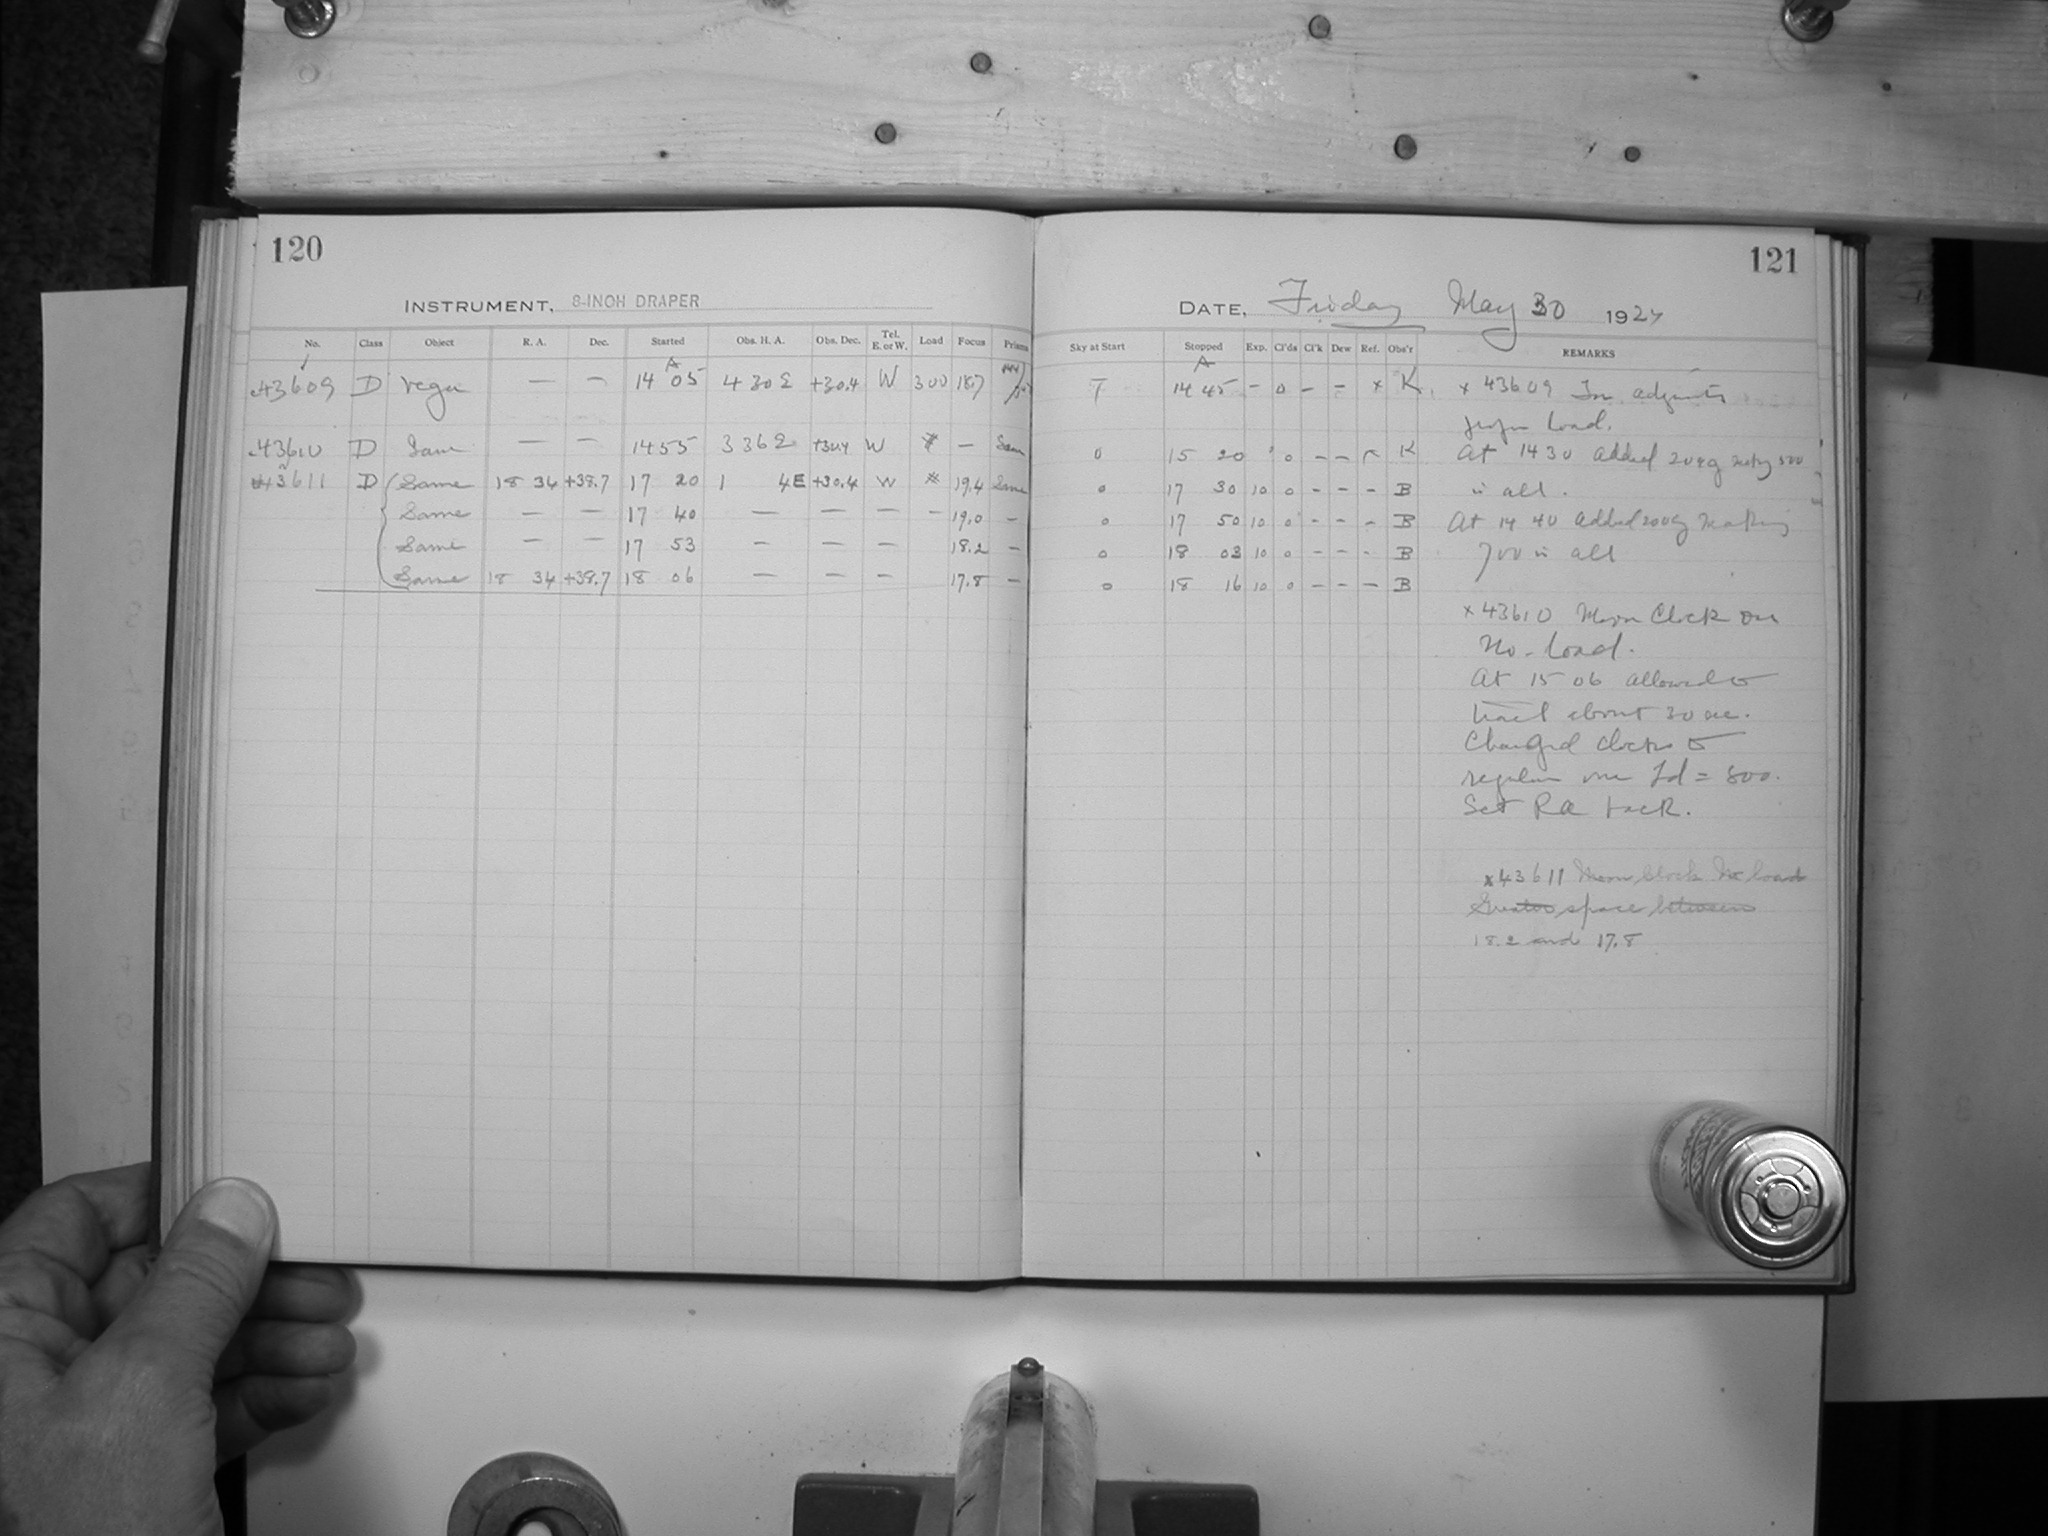 120
INSTRUMENT, 8-INCH DRAPER
No. Class Object R. A. Dec. Started Obs. H. A. Obs. Dec. Tel. E. or W. Load Focus Prisms
A
43609 D Vega — — 14 05 4 30 E +30.4 W 300 18.7
43610 D Same — — 14 55 3 36 E +30.4 W * — Same
43611 D Same 18 34 +38.7 17 20 1 4E +30.4 W * 19.4 Same
Same — — 17 40 — — — — 19.0 —
Same — — 17 53 — — — 18.2 —
Same 18 34 +38.7 18 06 — — — 17.8 —
121
DATE, Friday May 30 1924
Sky at Start Stopped Exp. Cl'ds Cl'k Dew Ref. Obs'r REMARKS
A
14 45 — 0 — — x K
0 15 20 0 — — K
0 17 30 10 0 — — — B
0 17 50 10 0 — — — B
0 18 03 10 0 — — — B
0 18 16 10 0 — — — B
x 43609
Load.
At 14 30 added 200g making 500
in all.
At 14 40 added 200g making
700 in all
x 43610 Moon Clock on
No load.
At 15 06 allowed to
trail about 30 sec.
Changed clocks to
regular one Ld = 800.
Set RA back.
x43611 Moon clock No load
Greater space between
18.2 and 17.8